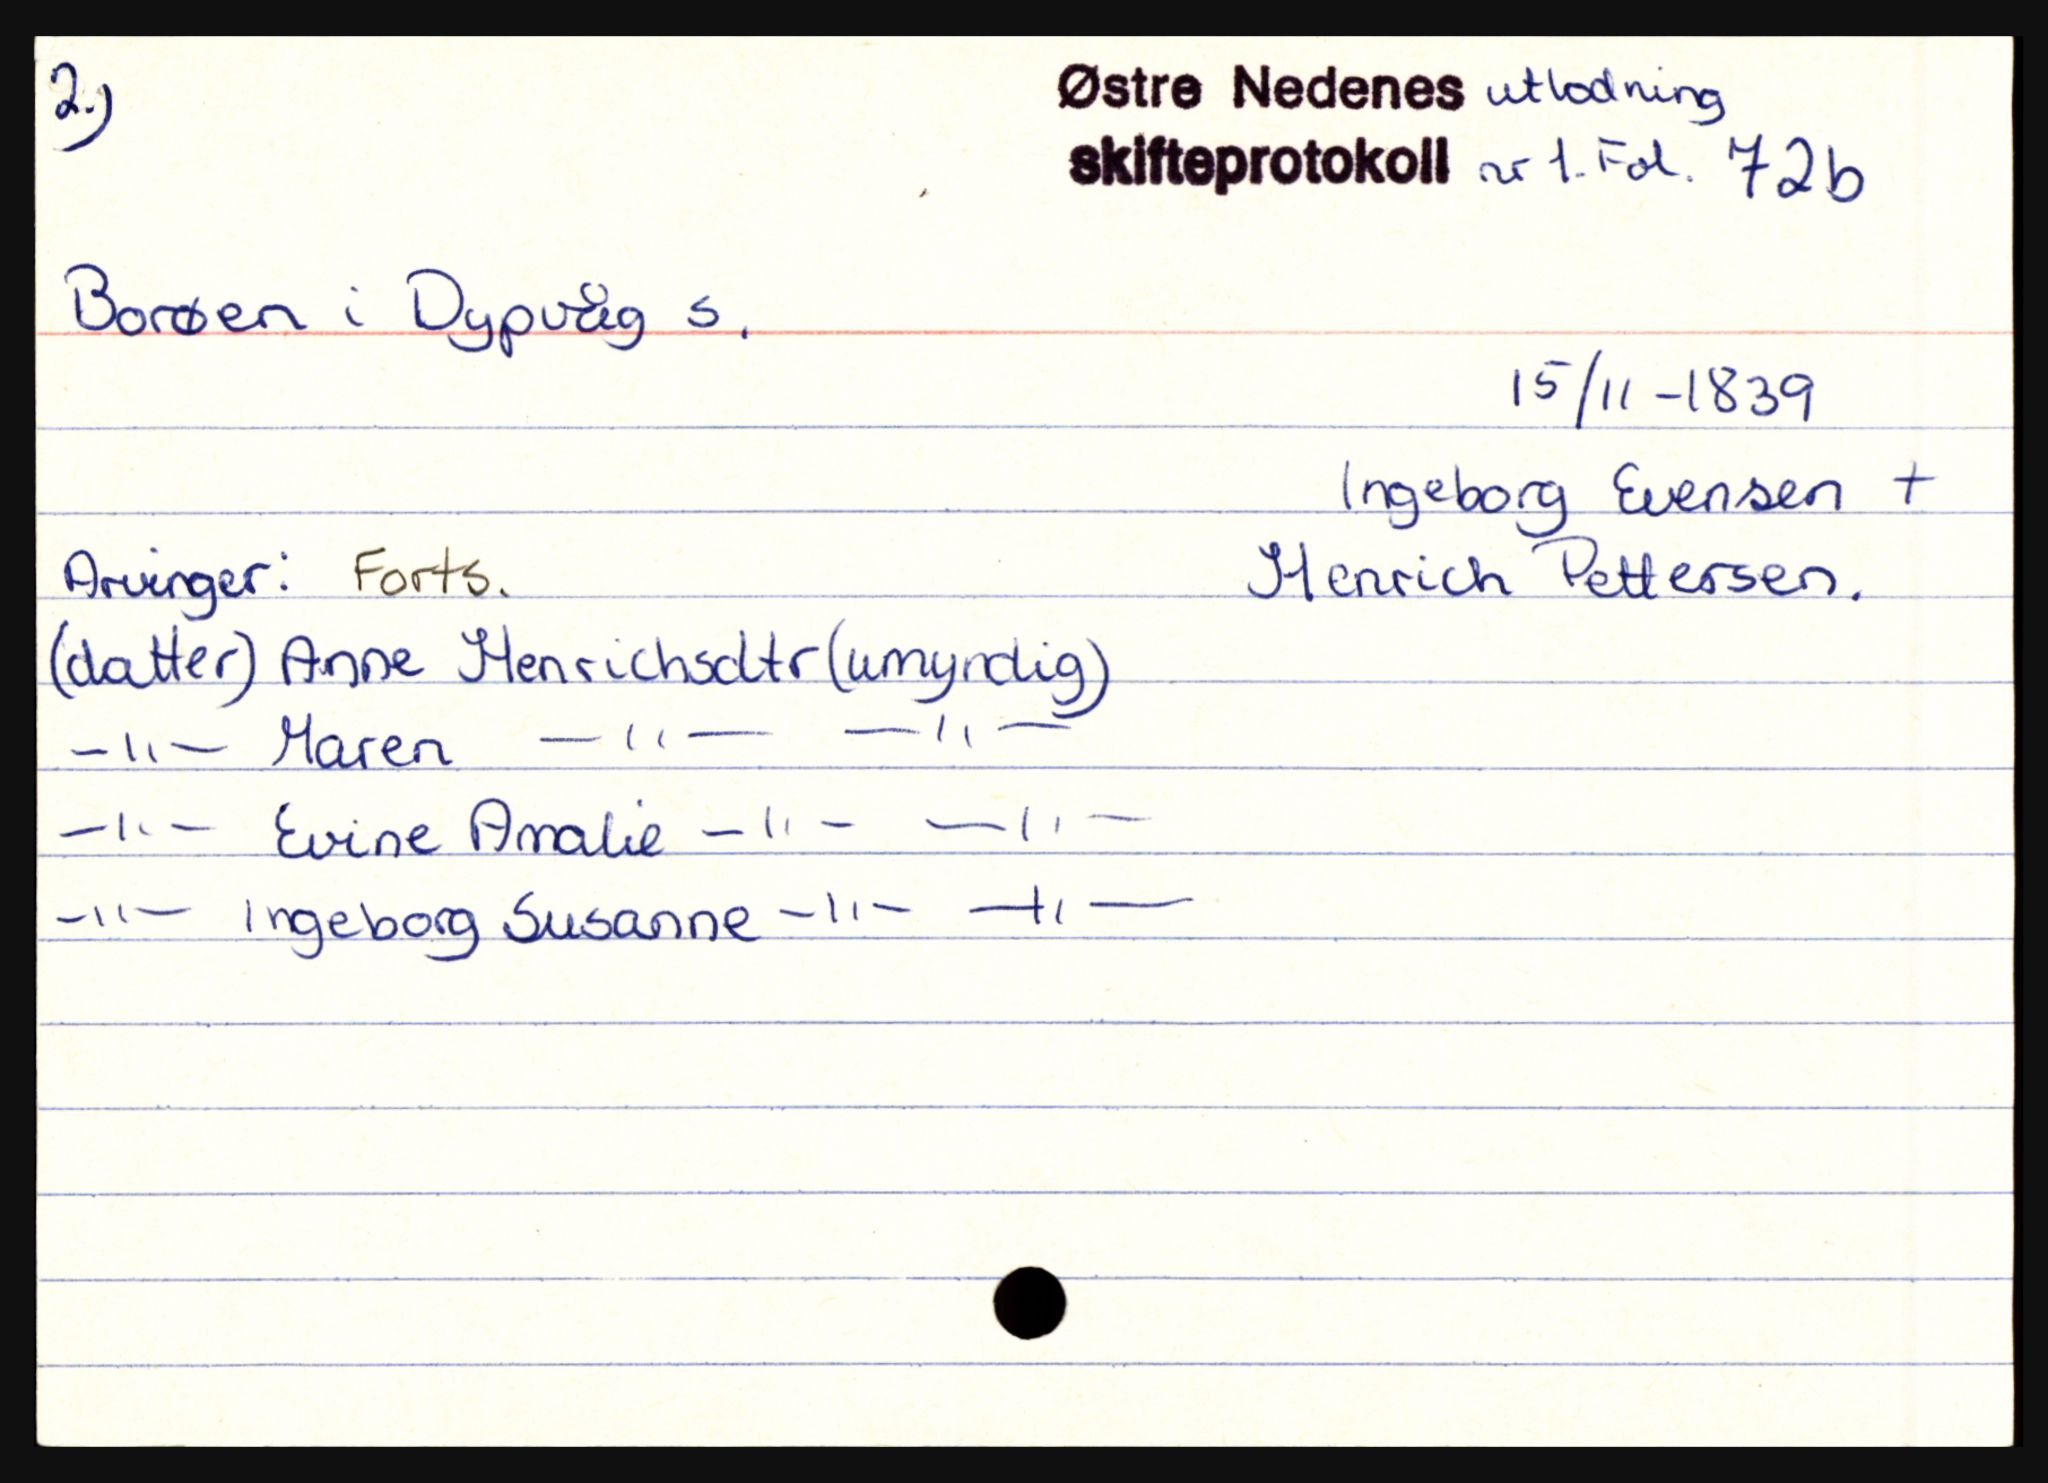 2.)
Østre Nedenes utlodning
skifteprotokoll nr 1. Fol. 72b
Borøen i Dypvåg s.
15/11 -1839
Ingeborg Evensen +
Arvinger: Forts. Henrich Pettersen.
(datter) Anne Henrichsdtr (umyndig)
—"— Maren —"— —"—
—"— Evine Amalie —"— —"—
—"— Ingeborg Susanne —"— —"—